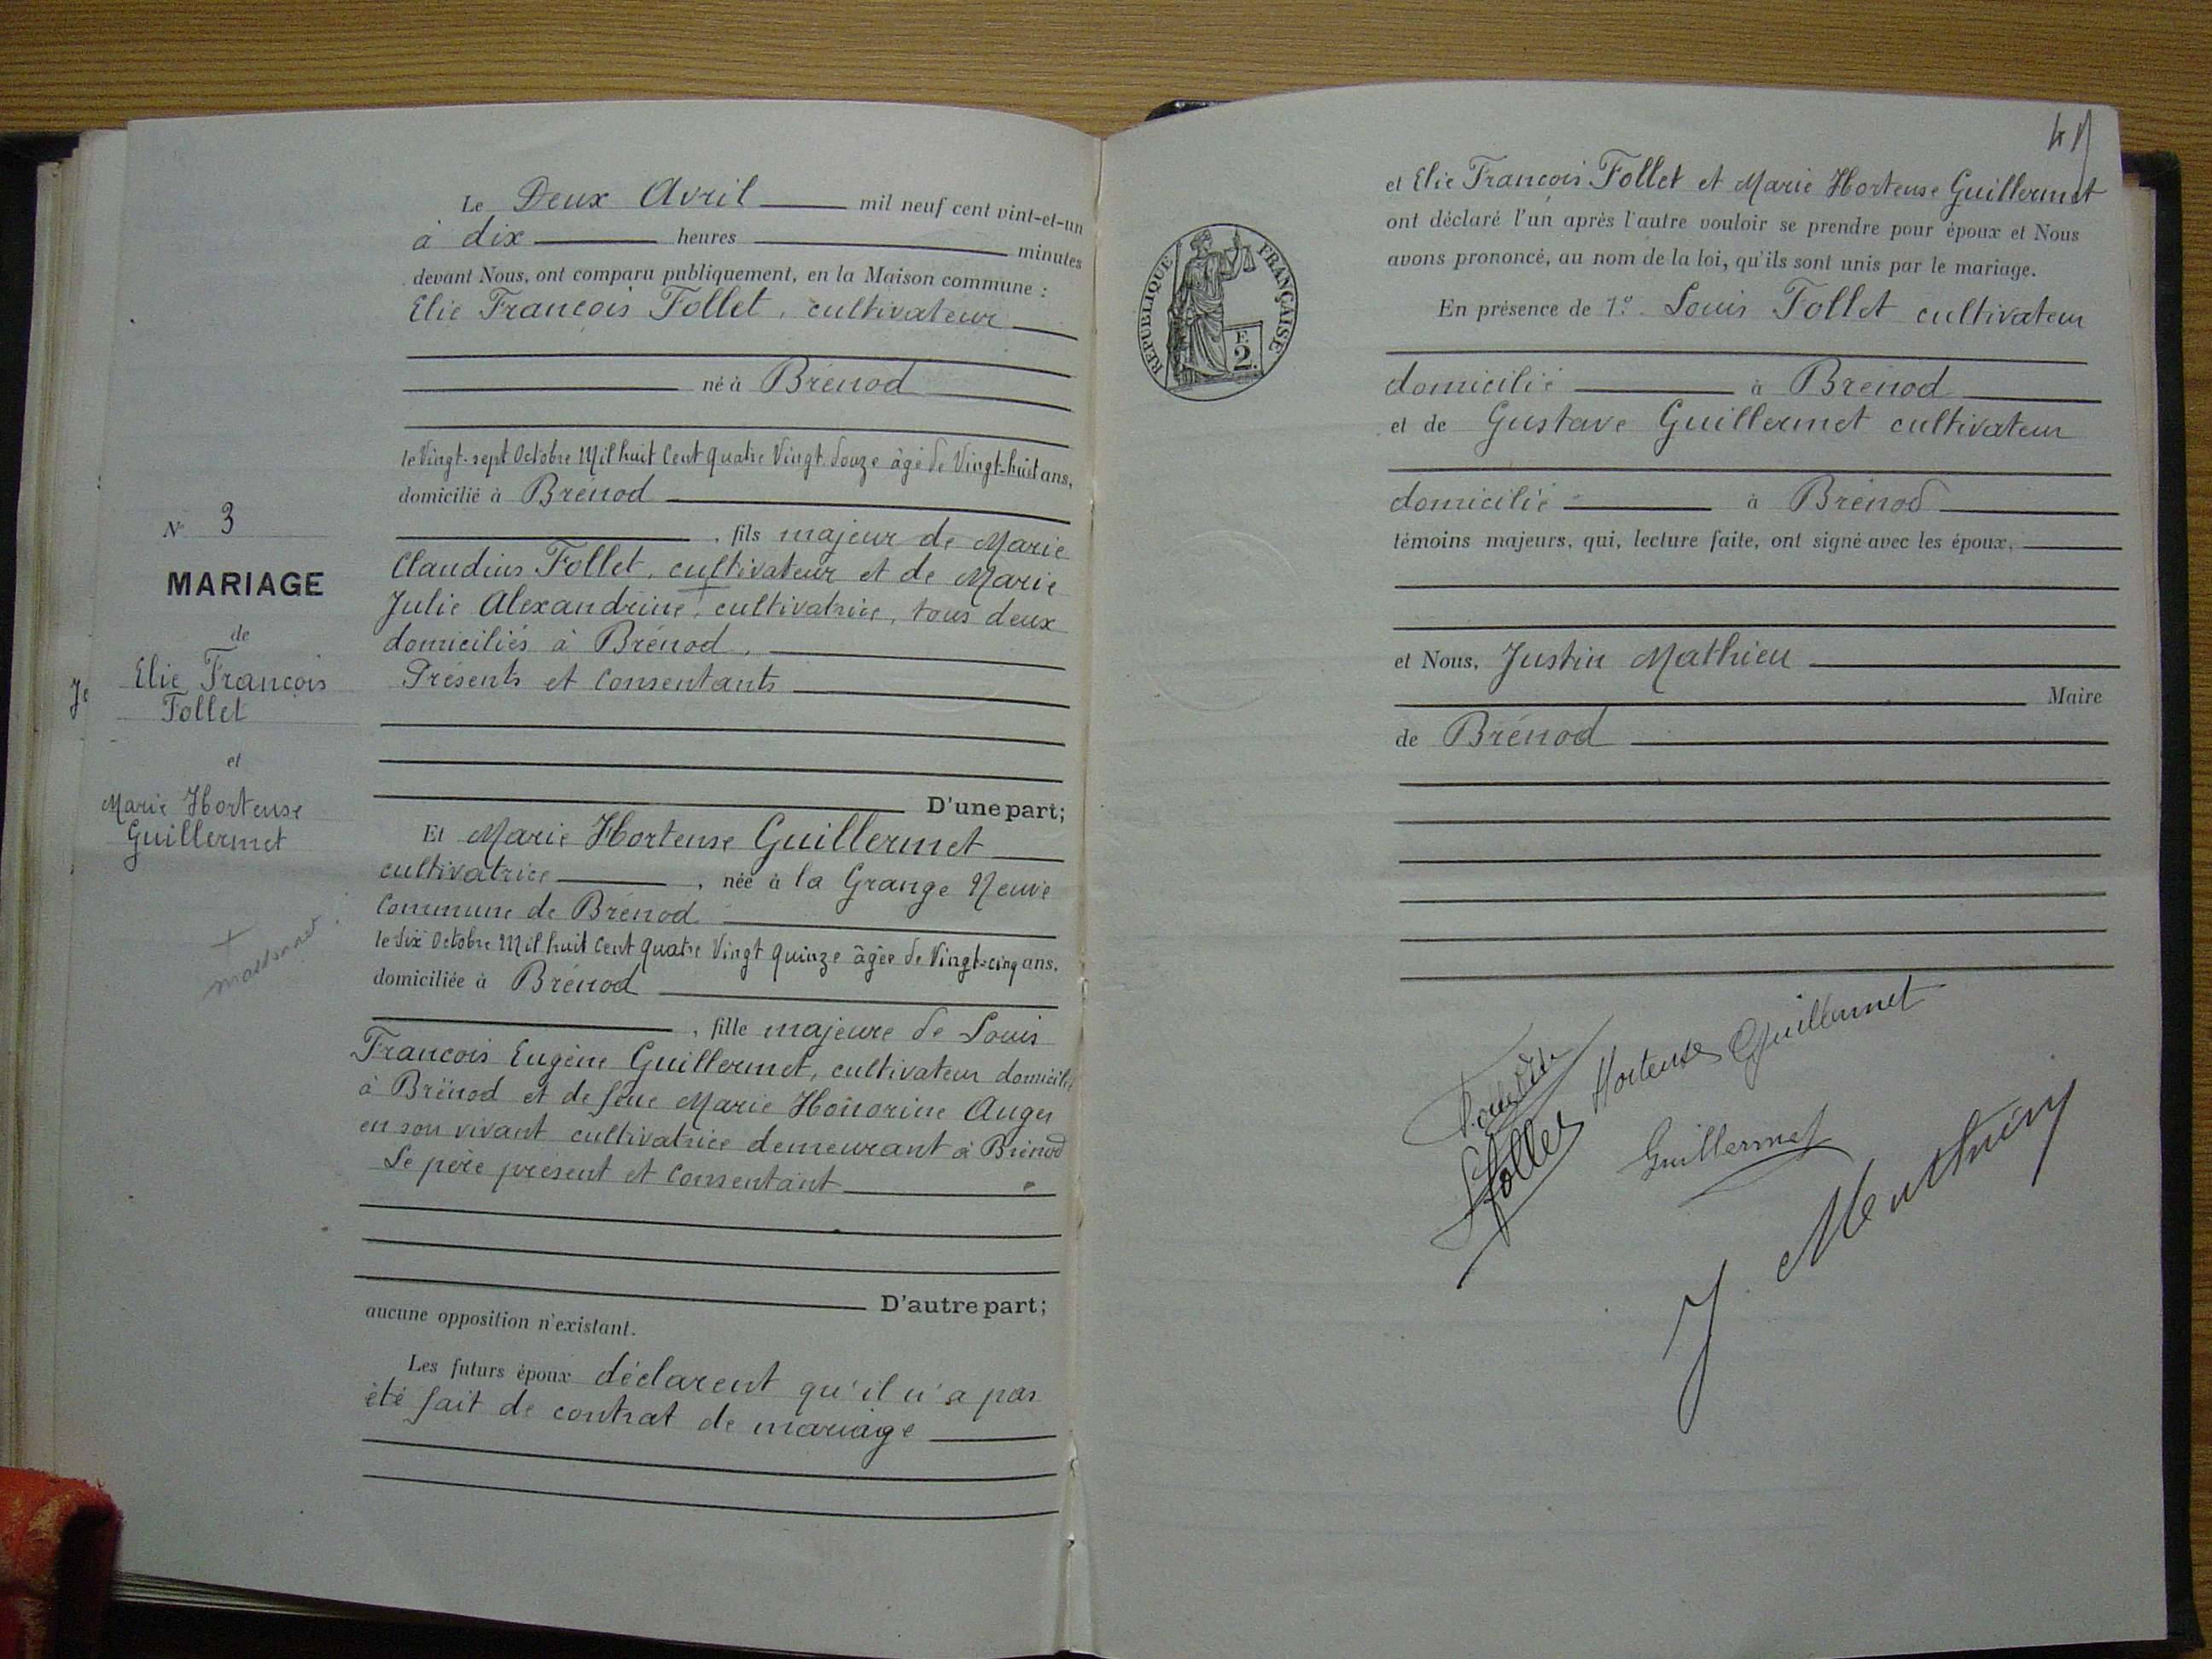 N° 3
MARIAGE
de
Elie François
Follet
et
Marie Hortense
Guillermet
Le Deux Avril mil neuf cent vint-et-un
à dix heures minutes
devant Nous, ont comparu publiquement, en la Maison commune :
Elie François Follet, cultivateur
né à Brénod
le Vingt-sept Octobre Mil huit Cent Quatre Vingt douze âgé de Vingt-huit ans,
domicilié à Brénod
, fils majeur de Marie
Claudius Follet, cultivateur et de Marie
Julie Alexandrine, cultivatrice, tous deux
domiciliés à Brénod.
Présents et Consentants
D'une part;
Et Marie Hortense Guillermet
cultivatrice , née à la Grange Neuve
Commune de Brénod
le Six Octobre Mil huit Cent Quatre Vingt Quinze âgée de Vingt-cinq ans,
domiciliée à Brénod
, fille majeure de Louis
François Eugène Guillermet, cultivateur domicilié
à Brénod et de feue Marie Honorine Auger
en son vivant cultivatrice demeurant à Brénod
Le père présent et Consentant
D'autre part;
aucune opposition n'existant.
Les futurs époux déclarent qu'il n'a pas
été fait de contrat de mariage
RÉPUBLIQUE FRANÇAISE
F.
2.
et Elie François Follet et Marie Hortense Guillermet
ont déclaré l'un après l'autre vouloir se prendre pour époux et Nous
avons prononcé, au nom de la loi, qu'ils sont unis par le mariage.
En présence de 1° Louis Follet cultivateur
domicilié à Brénod
et de Gustave Guillermet cultivateur
domicilié à Brénod
témoins majeurs, qui, lecture faite, ont signé avec les époux.
et Nous, Justin Mathieu
Maire
de Brénod
Hortense Guillermet
Follet
Guillermet